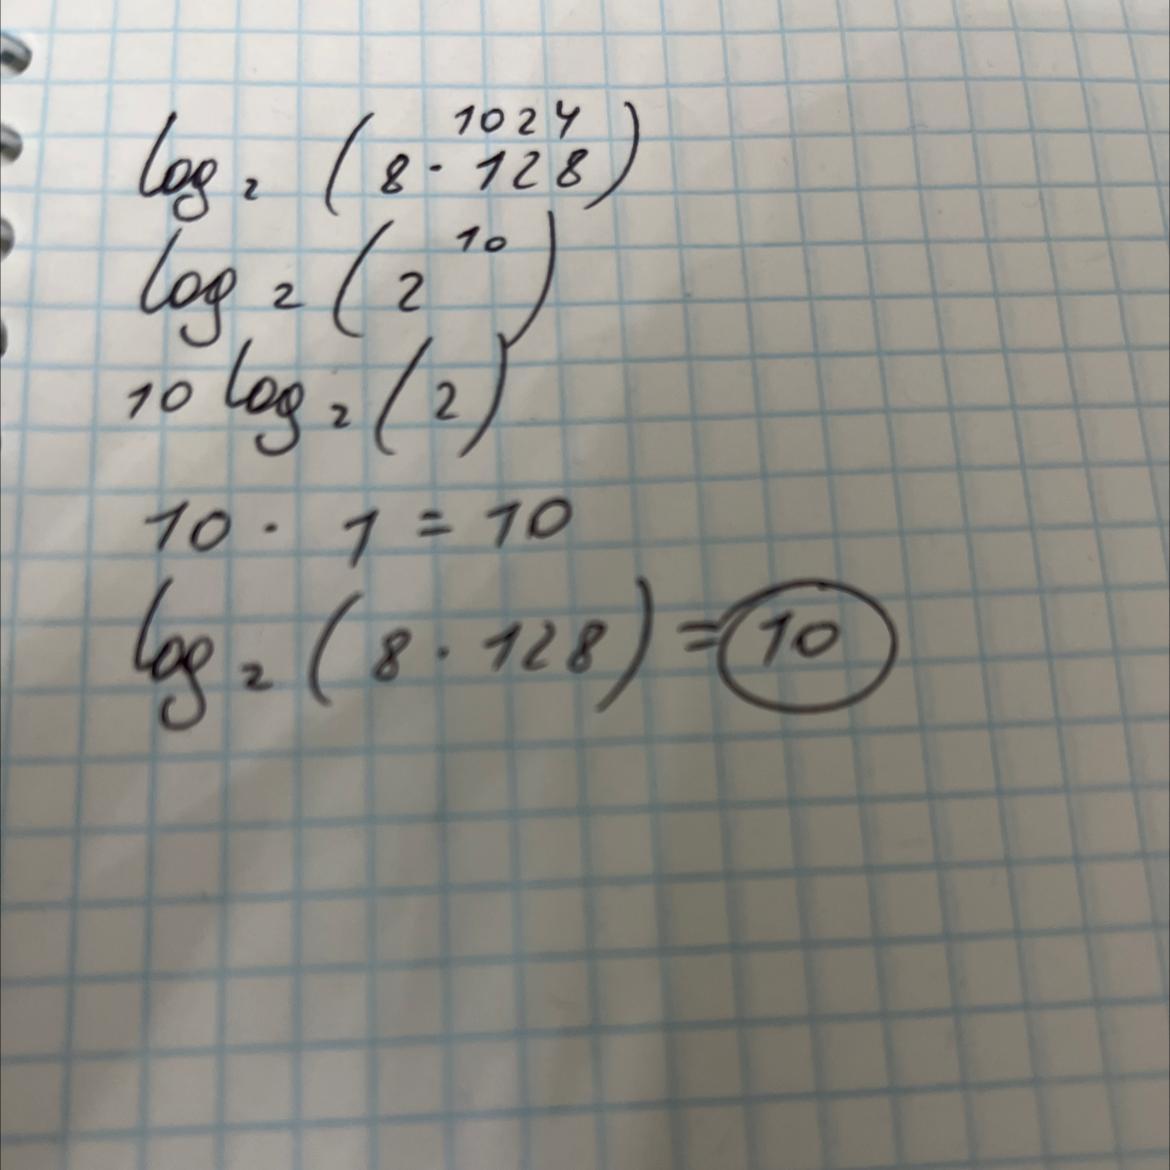 1024
log₂ (8 · 128)
log₂ (2¹⁰)
10 log₂ (2)
10 · 1 = 10
log₂ (8 · 128) = 10